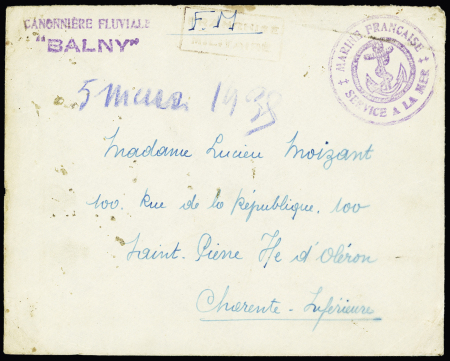 CANONNIÈRE FLUVIALE
"BALNY"
F.M
MARINE FRANÇAISE
SERVICE A LA MER
5 Mars 1938
Madame Lucien Moizant
100. Rue de la République. 100
Saint-Pierre Ile d'Oléron
Charente-Inférieure